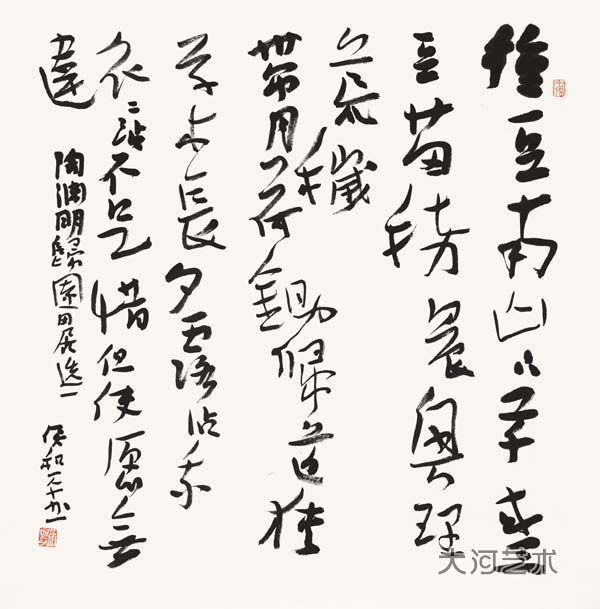 種豆南山下草盛
豆苗稀晨興理
荒穢
帶月荷鋤歸道狹
草木長夕露沾我
衣〻沾不足惜但使願無
違
陶淵明歸園田居選一
大河艺术